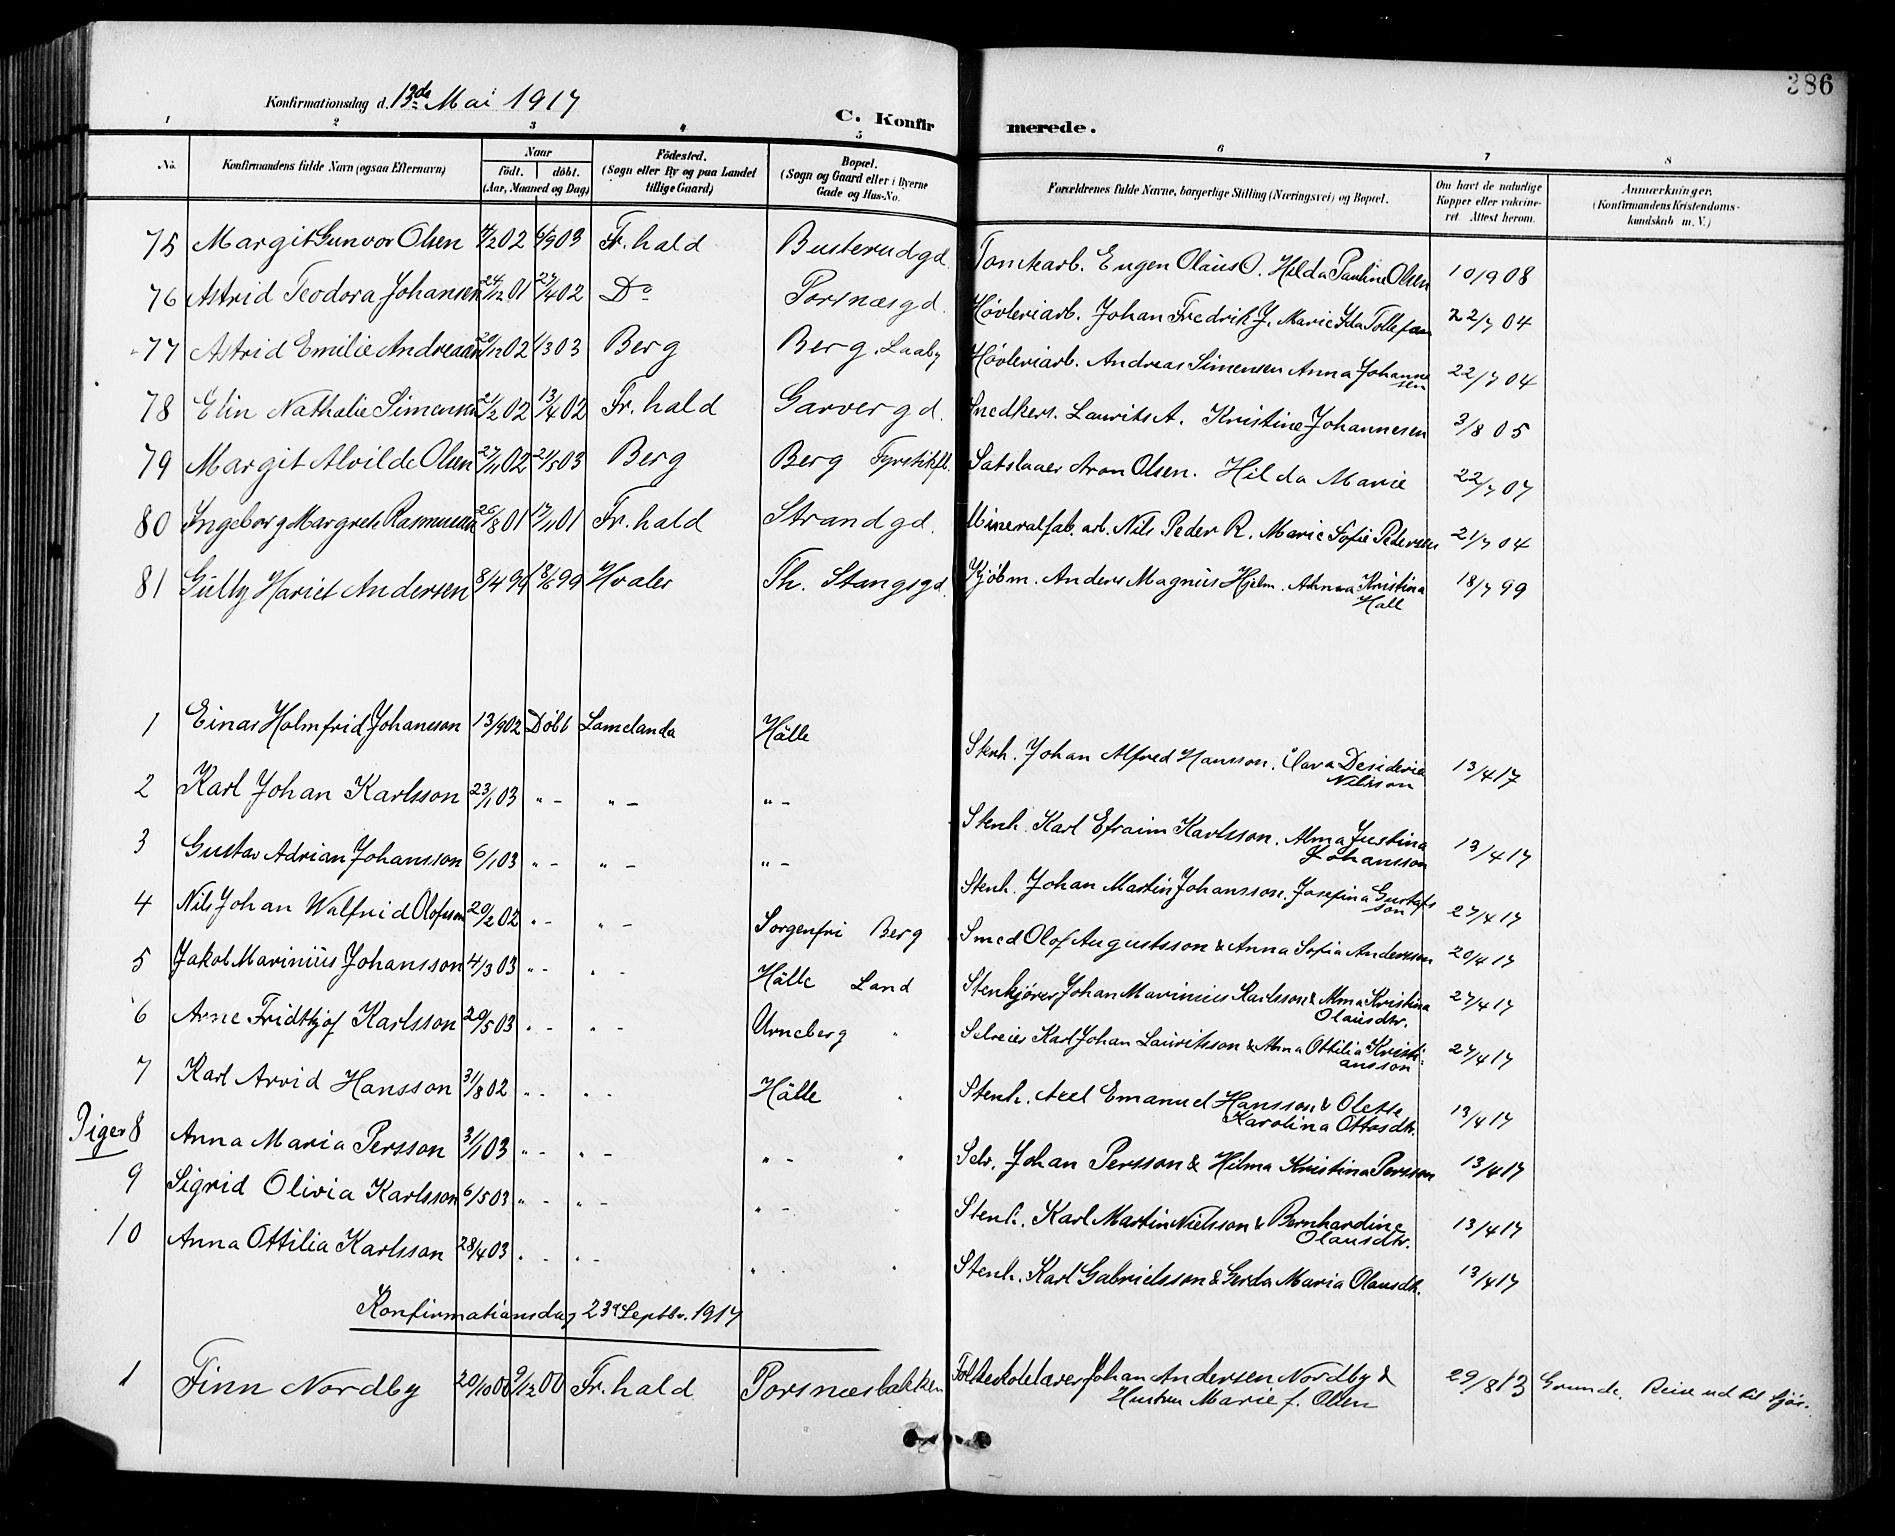 386
Konfirmationsdag d. 13de Mai 1917
C. Konfirmerede.
1 2 3 4 5 6 7 8
No. Konfirmandens fulde Navn (ogsaa Efternavn) Naar født. døbt. (Aar, Maaned og Dag) Fødested. (Sogn eller By og paa Landet tillige Gaard) Bopæl. (Sogn og Gaard eller i Byerne Gade og Hus-No. Forældrenes fulde Navne, borgerlige Stilling (Næringsvei) og Bopæl. Om havt de naturlige Kopper eller vaccineret. Attest herom. Anmærkninger. (Konfirmandens Kristendomskundskab m. V.)
75 Margit Gunvor Olsen 02 6/9 03 Fr.hald Busterudgd. Tomtearb. Eugen Olaus O. Hilda Pauline Olsen 10/9 08
76 Astrid Teodora Johansen 24/12 01 27/4 02 Do Porsnæsgd. Høvleriarb. Johan Fredrik J. Marie Ida Tollefsen 22/7 04
77 Astrid Emilie Andreasen 20/12 02 1/3 03 Berg Berg. Laaby Høvleriarb. Andreas Simensen Anna Johannesen 22/7 04
78 Elin Nathalie Simensen 21/2 02 13/4 02 Fr.hald Garvergd. Snedkers. Laurits A. Kristine Johannesen 3/8 05
79 Margit Alvilde Olsen 27/11 02 24/5 03 Berg Berg Fyrstikfb. Satslaaer Aron Olsen. Hilda Marie 22/7 07
80 Ingeborg Margrete Rasmussen 26/8 01 17/11 01 Fr.hald Strandgd. Mineralfab.arb. Nils Peder R. Marie Sofie Pedersen 21/7 04
81 Gully Hariet Andersen 8/4 99 18/6 99 Hvaler Th. Stangsgd. Kjøbm. Anders Magnus Hjelm. Athnea Kristina Hall 18/7 99
1 Einar Holmfrid Johansson 13/9 02 Döbt Lomelanda Hälle Stenh. Johan Alfred Hansson. Clara Desideria Nilsson 13/4 17
2 Karl Johan Karlsson 23/1 03 " - " - " - Stenh. Karl Efraim Karlsson. Alma Justina Johansson 13/4 17
3 Gustav Adrian Johansson 6/1 03 " - " - " - Stenh. Johan Martin Johansson. Josefina Gustafsson 27/4 17
4 Nils Johan Walfrid Olofsson 20/2 02 " - " - Sorgenfri Berg Smed Olof Augustsson & Anna Sofia Andersson 20/4 17
5 Jakob Marinius Johansson 4/3 03 " - " - Hälle Land Stenkjører Johan Marinius Karlsson & Alma Kristina Olausdtr. 27/4 17
6 Arne Fridthjof Karlsson 20/5 03 " - " - Urneberg " Selveier Karl Johan Lauritsson & Alma Ottilia Kristiansson 27/4 17
7 Karl Arvid Hansson 31/8 02 " - " - Hälle " Stenh. Axel Emanuel Hansson & Olette Karolina Ottosdtr. 13/4 17
Piger 8 Anna Maria Persson 31/1 03 " - " - " - " Selv. Johan Persson & Hilma Kristina Persson 13/4 17
9 Sigrid Olivia Karlsson 6/5 03 " - " - " - " Stenh. Karl Martin Nielsson & Bernhardine Olausdtr. 13/4 17
10 Anna Ottilia Karlsson 28/4 03 " - " - " " Stenh. Karl Gabrielsson & Gerda Maria Olausdtr. 13/4 17
Konfirmationsdag 23de Septbr. 1917
1 Finn Nordby 20/10 00 9/12 00 Fr.hald Porsnæsbakken Folkeskolelærer Johan Andersen Nordby & Hustru Marie f. Olsen 29/8 13 Grunde. Reise ud til sjøs.